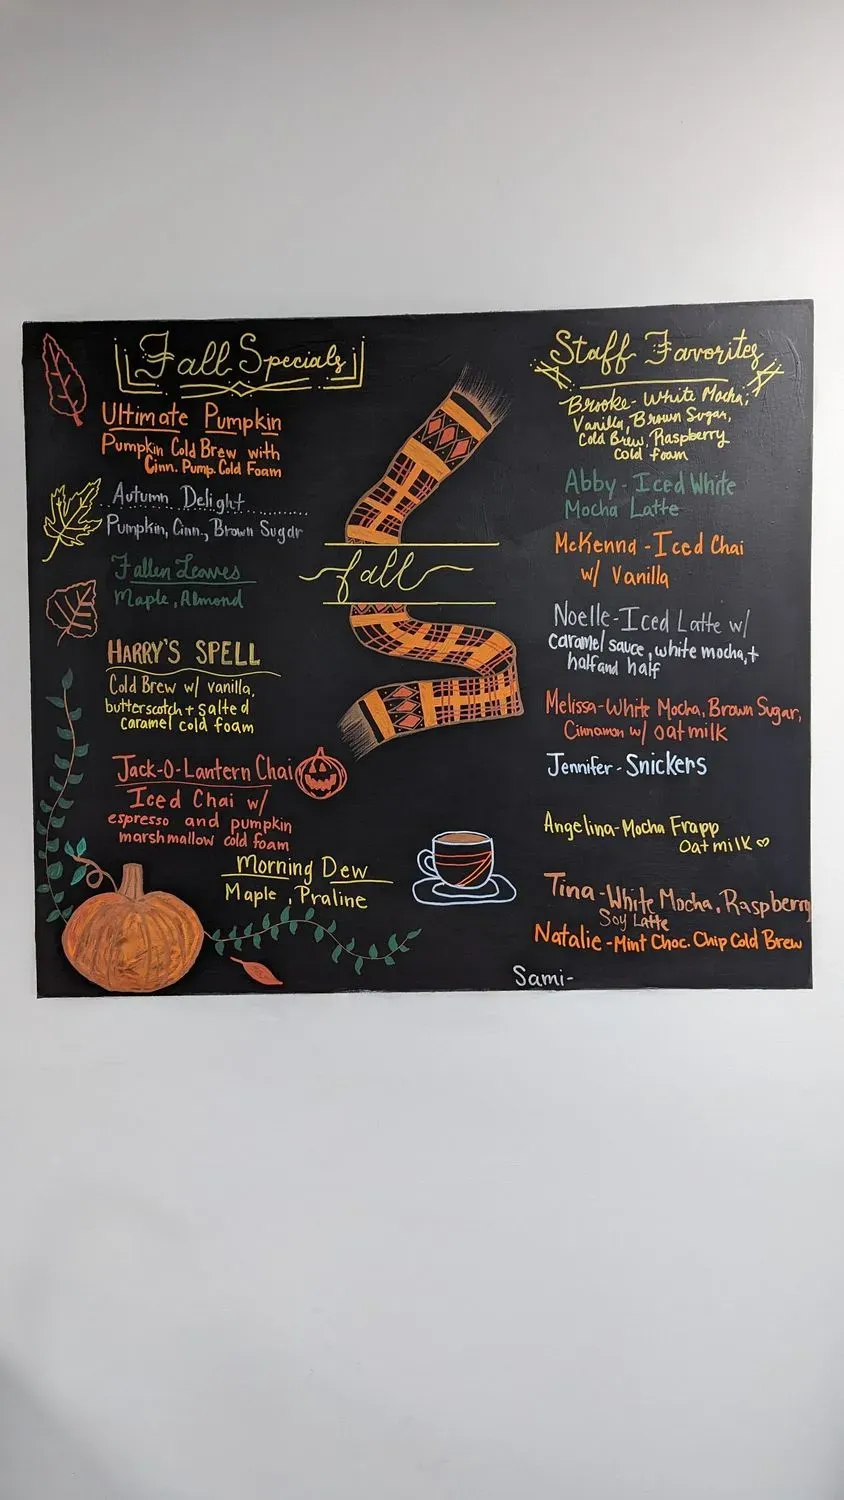 Fall Specials
Ultimate Pumpkin
Pumpkin Cold Brew with
Cinn. Pump. Cold Foam
Autumn Delight
Pumpkin, Cinn., Brown Sugar
Fallen Leaves
Maple, Almond
HARRY'S SPELL
Cold Brew w/ vanilla,
butterscotch + salted
caramel cold foam
Jack-O-Lantern Chai
Iced Chai w/
espresso and pumpkin
marshmallow cold foam
Morning Dew
Maple, Praline
fall
Staff Favorites
Brooke - White Mocha,
Vanilla, Brown Sugar,
Cold Brew, Raspberry
cold foam
Abby - Iced White
Mocha Latte
McKenna - Iced Chai
w/ Vanilla
Noelle - Iced Latte w/
caramel sauce, white mocha, +
half and half
Melissa - White Mocha, Brown Sugar,
Cinnamon w/ oatmilk
Jennifer - Snickers
Angelina - Mocha Frapp
Oatmilk ♡
Tina - White Mocha, Raspberry
Soy Latte
Natalie - Mint Choc. Chip Cold Brew
Sami-